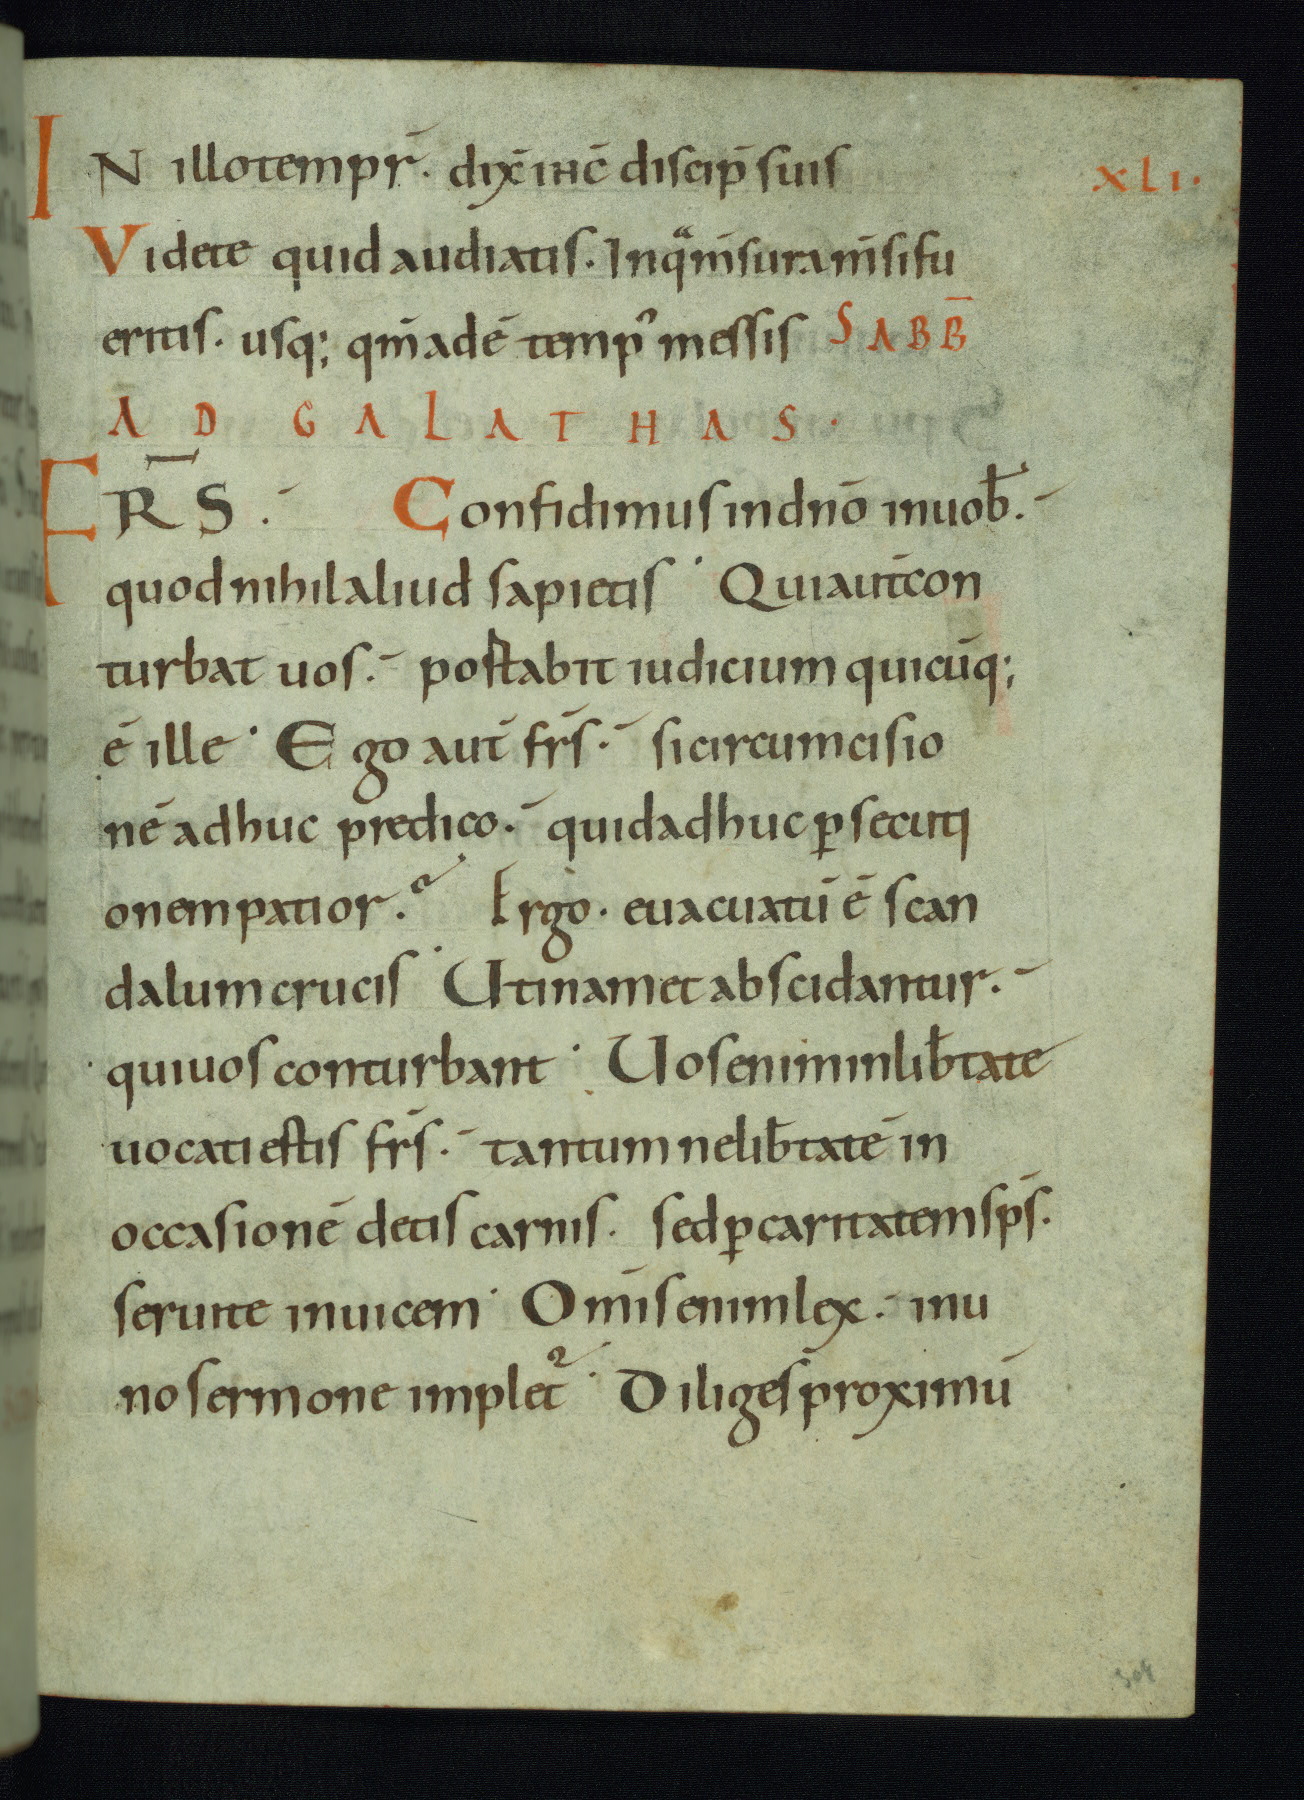 IN illo tempr̄. dix̄ ihc̄ discip̄ suis XLI.
Videte quid audiatis. In qͣ mensura m̄si fu
eritis. usq; qm̄ adē temp᾽ messis SABB̄
AD GALATHAS.
FR̄S. Confidimus in dn̄o in uob̄.
quod nihil aliud sapietis. Qui aut̄ con
turbat uos. portabit iudicium quicūq;
ē ille. Ego aut̄ frs̄. si circumcisio
nē adhuc predico. quid adhuc ꝑsecuti
onem patior. Ergo. euacuatū ē scan
dalum crucis. Utinam et abscidantur.
qui uos conturbant. Uos enim in lib̄tate
uocati estis frs̄. tantum ne lib̄tatē in
occasionē detis carnis. sed ꝑ caritatem sp̄s.
seruite inuicem. Omīs enim lex. in u
no sermone implet᾽. Diliges proximū